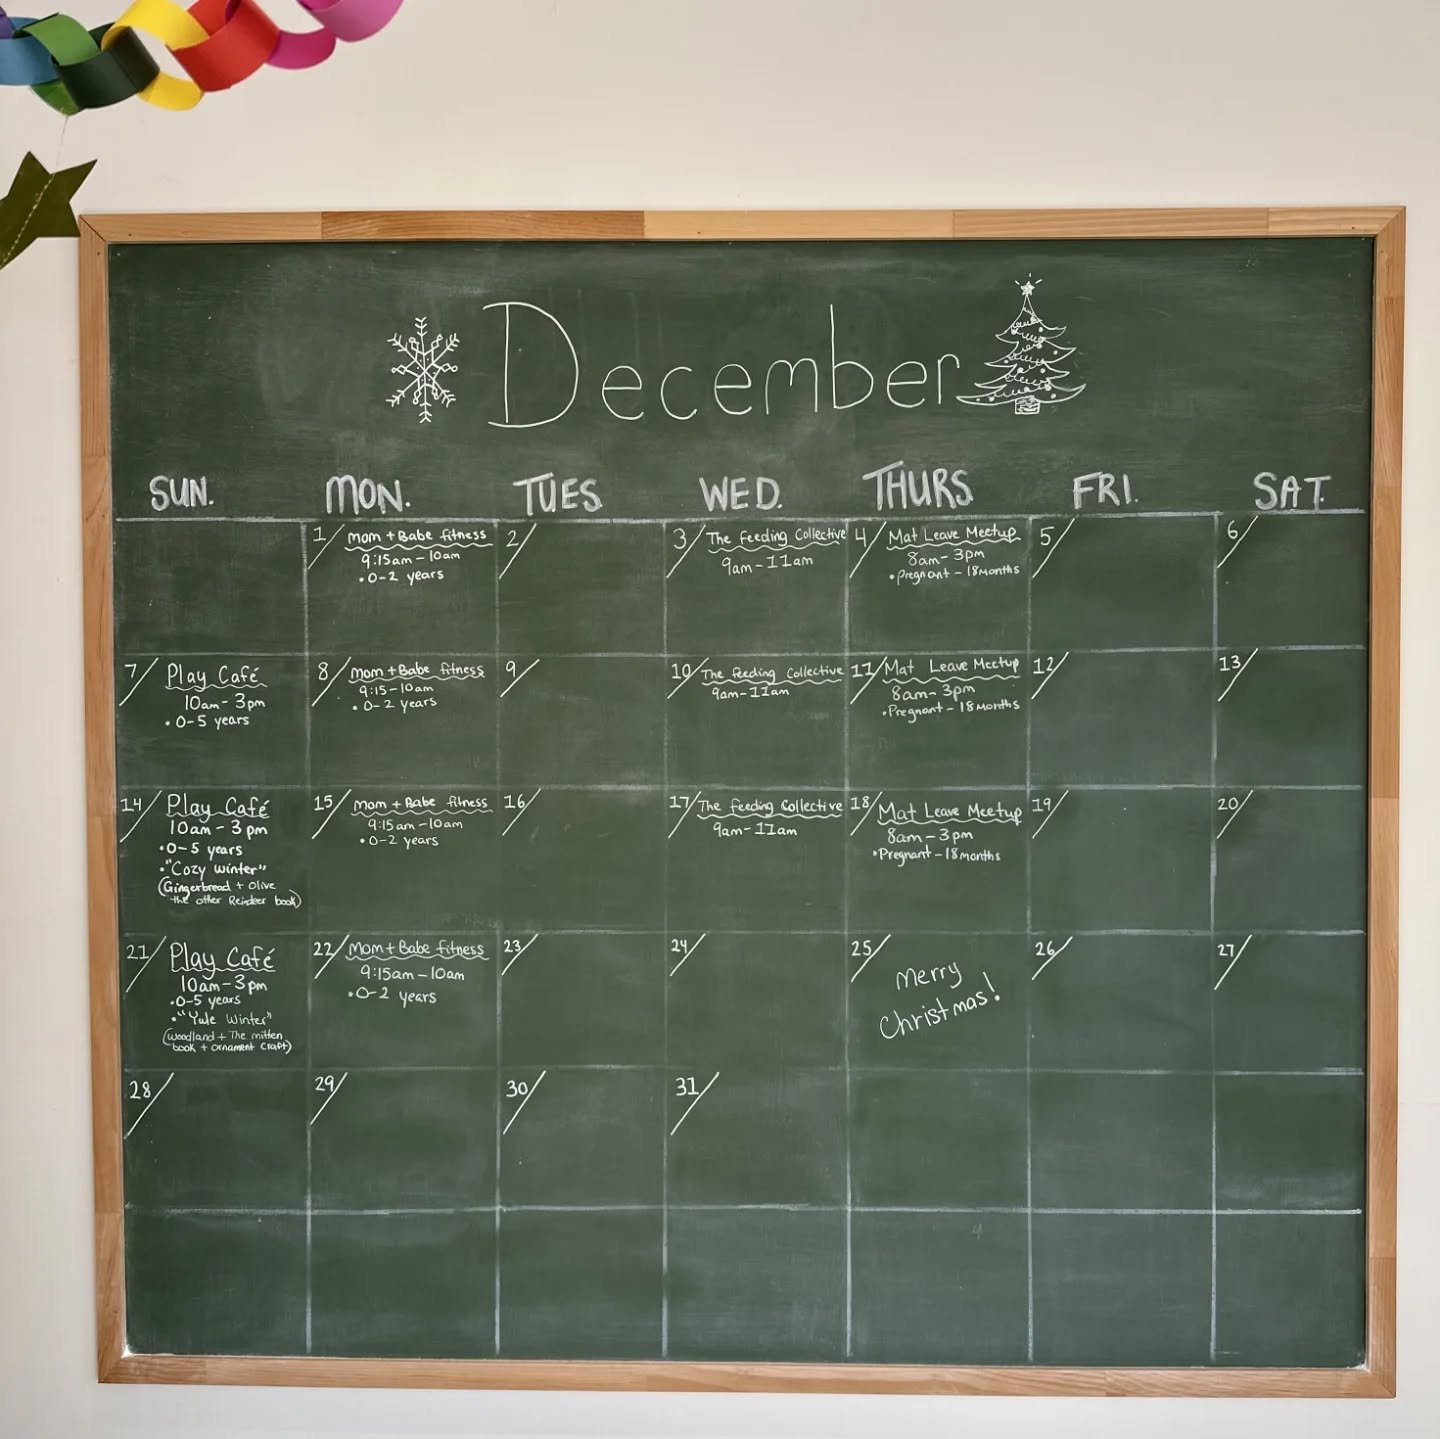 December
SUN. MON. TUES WED. THURS. FRI. SAT.
1
Mom + Babe fitness
9:15am - 10am
• 0-2 years
2
3
The Feeding Collective
9am - 11am
4
Mat Leave Meetup
8am - 3pm
• Pregnant - 18 Months
5
6
7
Play Café
10am - 3pm
• 0-5 years
8
Mom + Babe fitness
9:15 - 10am
• 0-2 years
9
10
The Feeding Collective
9am - 11am
11
Mat Leave Meetup
8am - 3pm
• Pregnant - 18 Months
12
13
14
Play Café
10am - 3pm
• 0-5 years
• "Cozy Winter"
(Gingerbread + Olive
the other Reindeer book)
15
Mom + Babe fitness
9:15am - 10am
• 0-2 years
16
17
The Feeding Collective
9am - 11am
18
Mat Leave Meetup
8am - 3pm
• Pregnant - 18 months
19
20
21
Play Café
10am - 3pm
• 0-5 years
• "Yule Winter"
(Woodland + The mitten
book + ornament craft)
22
Mom + Babe fitness
9:15am - 10am
• 0-2 years
23
24
25
Merry
Christmas!
26
27
28
29
30
31